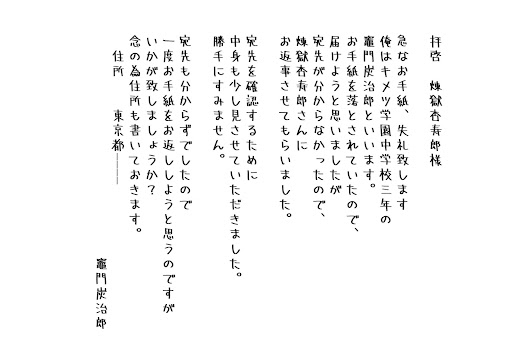 拝啓　煉獄杏寿郎様
急なお手紙、失礼致します
俺はキメツ学園中学校三年の
竈門炭治郎といいます。
お手紙を落とされていたので、
届けようと思いましたが
宛先が分からなかったので、
煉獄杏寿郎さんに
お返事させてもらいました。
宛先を確認するために
中身も少し見させていただきました。
勝手にすみません。
宛先も分からずでしたので
一度お手紙をお返ししようと思うのですが
いかが致しましょうか？
念の為住所も書いておきます。
住所　　東京都――――
竈門炭治郎